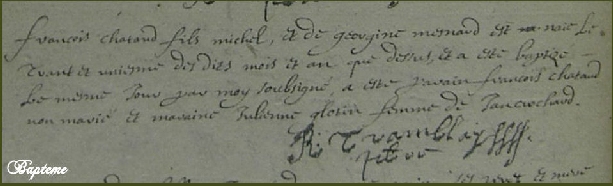 françois chatand fils michel, et de georgine menard est naie le
trant et unieme des dits mois et an que dessus, et a eté baptizé
le meme jour par moy soubsigné, a esté parain françois chatand
non marié et maraine Julienne glotin femme de Janco chard.
R. Tramblay
pbre
Bapteme